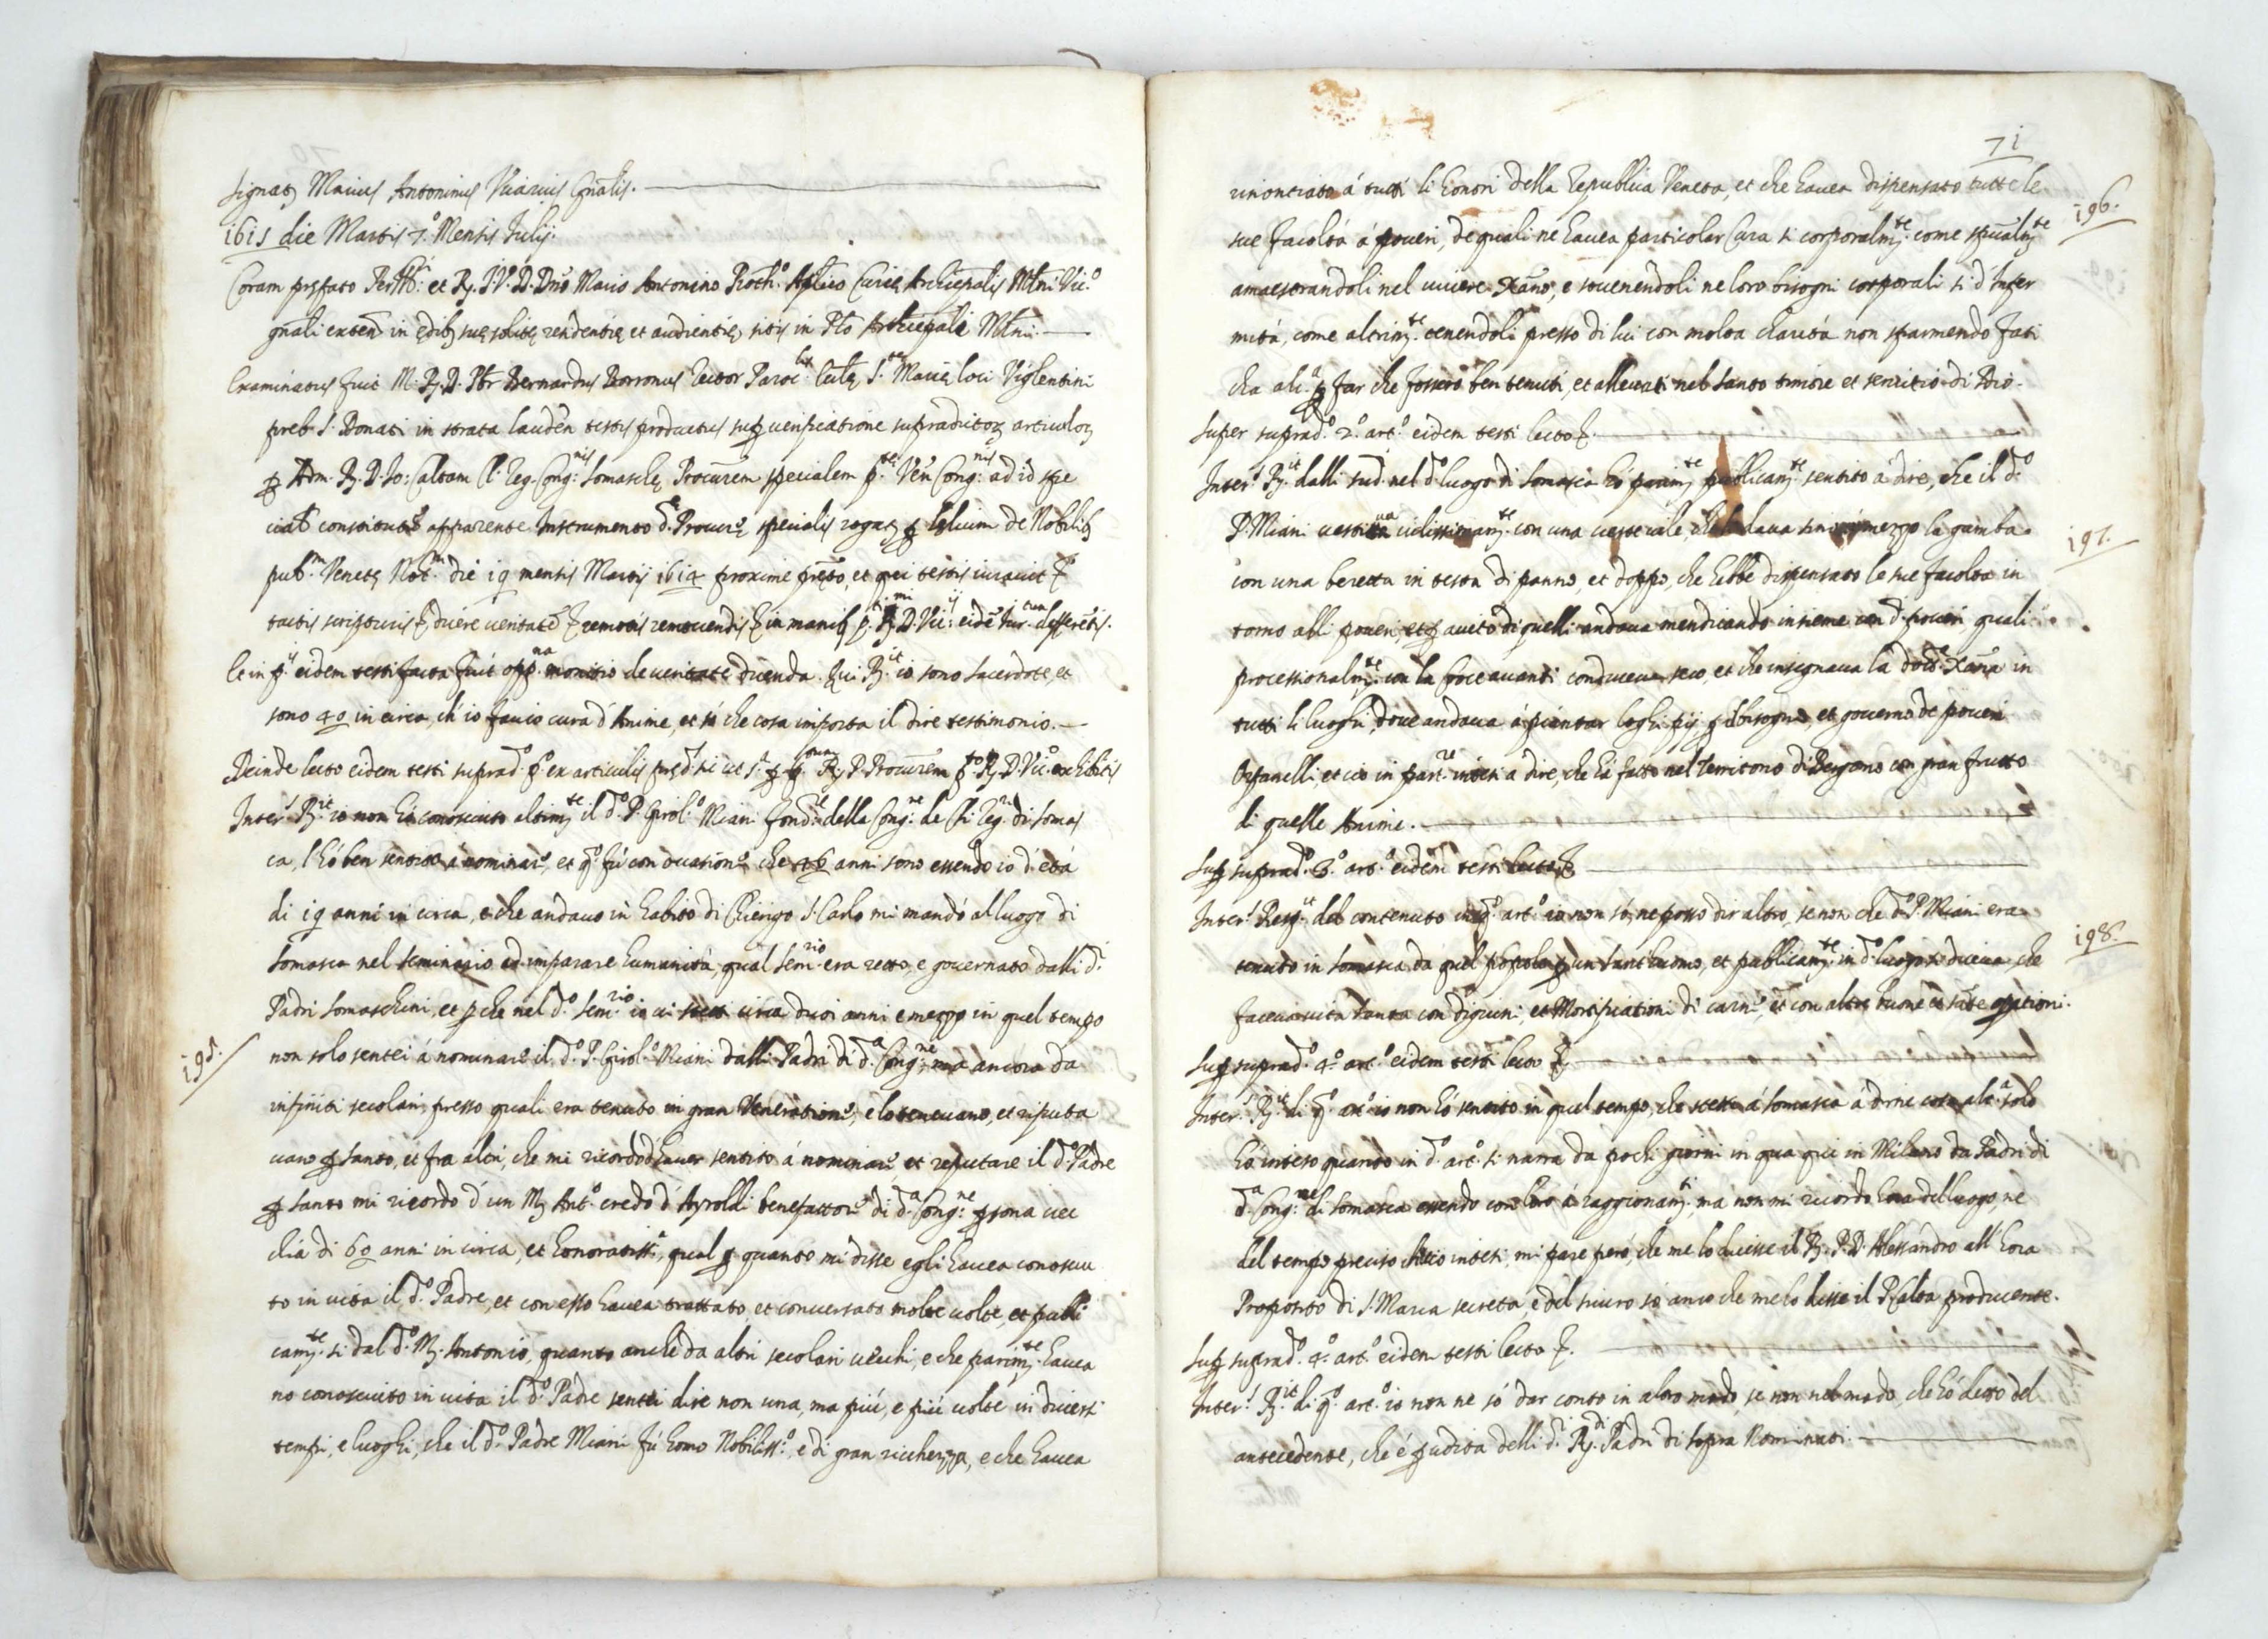 Signat Marius Antoninus Vicarius Gnalis.
1615 die Martis 7.º Mensis Julij.
Coram prefato Perill: et R. J. V. D. Dno Mario Antonino Proth.º Aplico Curie Archiepalis Mlni Vic.º
gnali existen in edib sue solite residentie et audientie sitis in Plo Archiepali Mlni.
Examinatus fuit M. R. D. Pbr Bernardus Borronus Rector Paroc.lis Eccle S. Marie loci Viglentini
preb S. Donati in strata lauden testis productus sup verificatione supradictor articulor
p Adm. R. D. Jo: Caltam Cl. Reg. Cong.nis Somasche, Procurem specialem p.te Ven Cong.nis ad id spe
cialr constitutu apparente Instrumento d. Procure specialis rogat p de Nobilib
pub.m Venet Not.m die 19 mensis Martij 1614 proxime preto, et qui testis iuravit
tactis scripturis dicere veritate remotis removendis in manib p.ti R.mi D. Vic.ij eide Jur.tum defferetis.
Et in p. eidem testi facta fuit opp.na monitio de veritate dicenda. Qui R.it io sono sacerdote, et
sono 40 in circa, ch'io faccio cura d'Anime, et sò che cosa importa il dire testimonio.
Deinde lecto eidem testi suprad.º p.º ex articulis pred.ti ut s. p p. R. P. Procurem p.to R. D. Vic.º exhibitis
Inter.s R.it io non hò conosciuto altrim.te il d.º P. Girol.º Miani fond.re della Cong.ne de Chi. Reg. di Somas
ca, l'hò ben sentito à nominare, et q.º fù con occasione, che 46 anni sono essendo io d'età
di 19 anni in circa, e che andavo in habito di Chierigo S. Carlo mi mandò al luogo di
Somasca nel Seminario ad imparare humanità, qual Sem.rio era retto, e governato dalli d.
Padri Somaschini, et pche nel d.º Sem.rio io vi stetti circa duoi anni e mezzo in quel tempo
195.
non solo sentei à nominare il d.º P. Girol.º Miani dalli Padri di d.a Cong.ne, ma ancora da
infiniti secolari, presso quali era tenuto in gran Veneratione, e lo tenevano, et riputa
vano p santo, et fra altri, che mi ricordo d'haver sentito à nominare, et reputare il d.º Padre
p santo mi ricordo d'un M. Ant.º credo d'Ayroldi benefattore di d.a Cong.ne psona vec
chia di 60 anni in circa, et honoratiss.a, qual p quanto mi disse egli havea conosciu
to in vita il d.º Padre, et con esso havea trattato, et conversato molte volte, et publi
cam.te si dal d.º M. Antonio, quanto anche da altri secolari vecchi, e che parim.te havea
no conosciuto in vita il d.º Padre sentei dire non una, ma più, e più volte in diversi
tempi, e luoghi, che il d.º Padre Miani fù homo Nobiliss.º, e di gran richezza, e che havea
71
rinonciato à tutti li honori della Republica Veneta, et che havea dispensato tutte le
196.
sue facoltà à poveri, de quali ne havea particolar Cura si corporalm.te come spualm.te
amaestrandoli nel vivere Xano, e sovenendoli ne loro bisogni corporali si d'Infer
mità, come altrim.te tenendoli presso di lui con molta charità non sparmendo fati
cha alc.a p far che fossero ben tenuti, et allevati nel santo timore et servitio di Dio.
Super suprad.º 2.º art.º eidem testi lecto
Inter.s R.it dalli sud. nel d.º luogo di Somasca hò parim.te publicam.te sentito à dire, che il d.º
P. Miani vestiva vilissimam.te con una veste vile, che li dava sino à mezzo la gamba
197.
con una beretta in testa di panno, et doppo, che hebbe dispensato le sue facoltà in
torno alli poveri, et p aveto di quelli andava mendicando insieme con d. poveri, quali
processionalm.te con la Croce avanti conduceva seco, et che insegnava la dott.a Xana in
tutti li luoghi, dove andava à piantar loghi pij p bisogno, et governo de poveri
Orfanelli, et ciò in part.re intesi à dire, che hà fatto nel Territorio di Bergamo con gran frutto
di quelle Anime.
Sup suprad.º 3.º art.º eidem testi lecto
Inter.s Resp.it del contenuto in q.º art.º io non sò, ne posso dir altro, se non che d.º P. Miani era
198.
tenuto in Somasca da quel popolo p un sant'huomo, et publicam.te in d.º luogo si diceva, che
faceva vita santa con digiuni, et Mortificationi di carne, et con altre buone et sante oprationi.
Sup suprad.º 4.º art.º eidem testi lecto
Inter.s R.it di q.º art.º io non hò sentito in quel tempo, che stetti à Somasca à dirne cosa alc.a solo
hò inteso quanto in d.º art.º si narra da pochi giorni in qua qui in Milano da Padri di
d.a Cong.ne di Somasca essendo con loro à raggionam.ti, ma non mi ricordo hora del luogo, ne
del tempo preciso ch'ciò intesi, mi pare però, che me lo dicesse il R. P. D. Alessandro all'hora
Preposito di S. Maria secreta, e del sicuro sò anco che me lo disse il P. Calta producente.
Sup suprad.º 4.º art.º eidem testi lecto
Inter.s R.it di q.º art.º io non ne sò dar conto in altro modo, se non nel modo, che hò detto del
antecedente, che è p udita delli d.i R.di Padri di sopra Nominati.